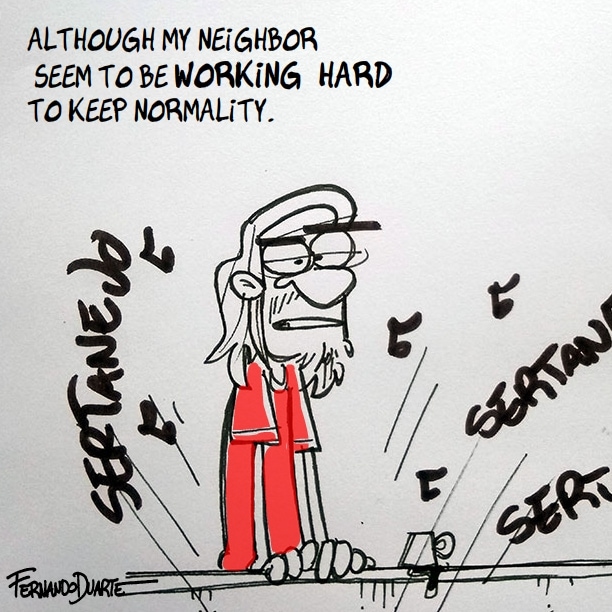 ALTHOUGH MY NEIGHBOR
SEEM TO BE WORKING HARD
TO KEEP NORMALITY.
SERTANEJO
SERTANE
SERT
FERNANDO DUARTE